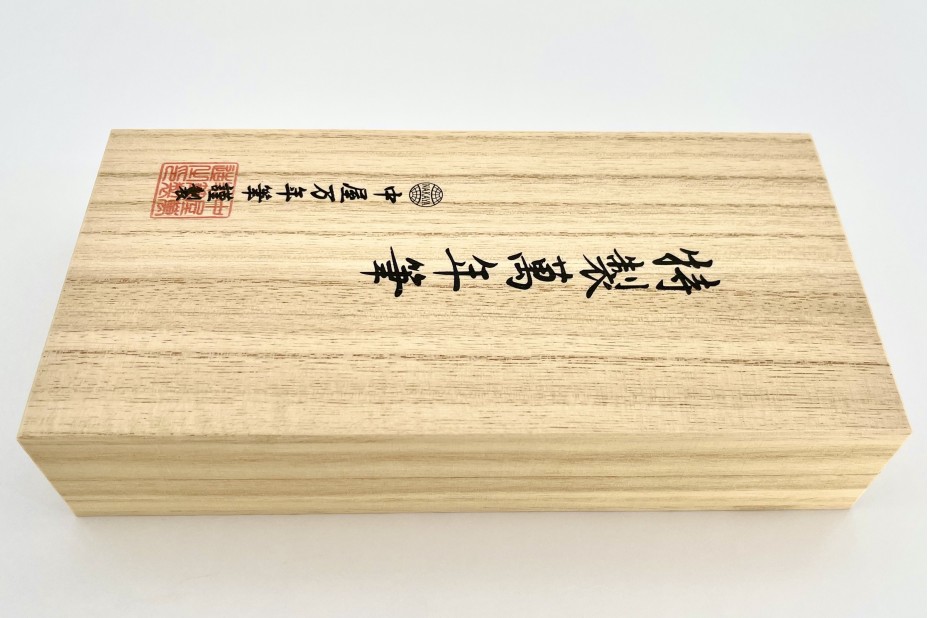 特製萬年筆
NAKAYA
中屋万年筆 謹製